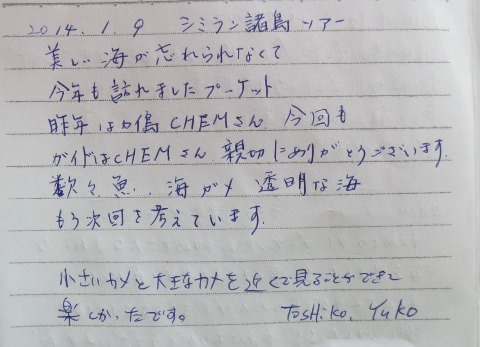 2014.1.9 シミラン諸島ツアー
美しい海が忘れられなくて
今年も訪れましたプーケット
昨年はカ島CHEMさん 今回も
ガイドはCHEMさん 親切にありがとうございます.
数々魚、海ガメ 透明な海
もう次回を考えています.
小さいカメと大きなカメを近くで見ることができて
楽しかったです。 Toshiko, Yuko